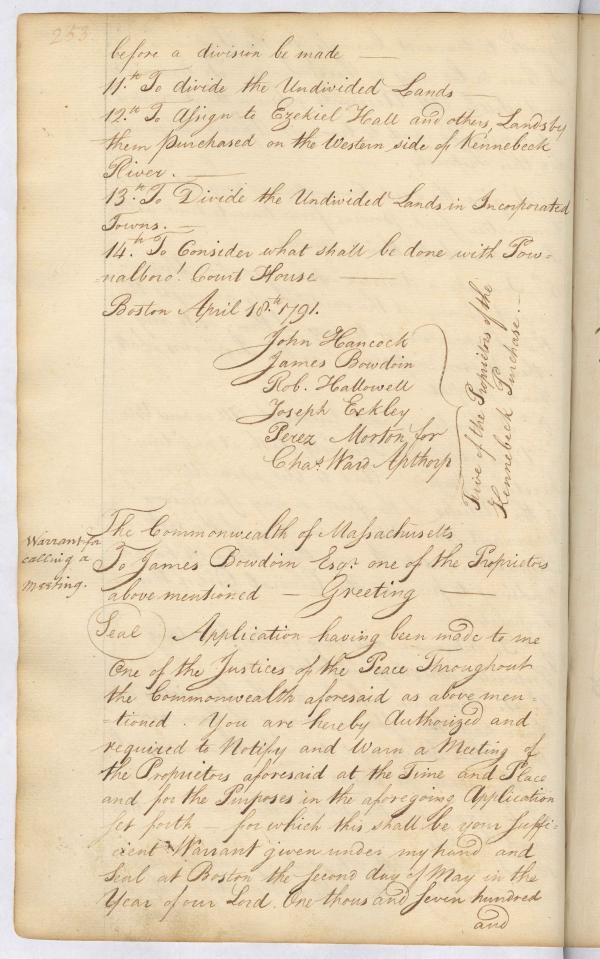 253
before a division be made —
11.th To divide the Undivided Lands —
12.th To Assign to Ezekiel Hall and others, Lands by
them purchased on the Western side of Kennebeck
River. —
13.th To Divide the Undivided Lands in Incorporated
Towns. —
14.th To Consider what shall be done with Pow-
nalboro' Court House —
Boston April 18.th 1791.
John Hancock
James Bowdoin
Rob. Hallowell
Joseph Eckley
Perez Morton for
Chas. Ward Apthorp
Five of the Proprietors of the
Kennebeck Purchase. —
The Commonwealth of Massachusetts
Warrant for
calling a
Meeting.
To James Bowdoin Esqr. one of the Proprietors
above mentioned — Greeting —
Seal Application having been made to me
One of the Justices of the Peace Throughout
the Commonwealth aforesaid as above men-
-tioned. You are hereby Authorized and
required to Notify and Warn a Meeting of
the Proprietors aforesaid at the Time and Place
and for the Purposes in the aforegoing Application
set forth — for which this shall be your suffi-
cient Warrant given under my hand and
Seal at Boston the second day of May in the
Year of our Lord One thousand seven hundred
and